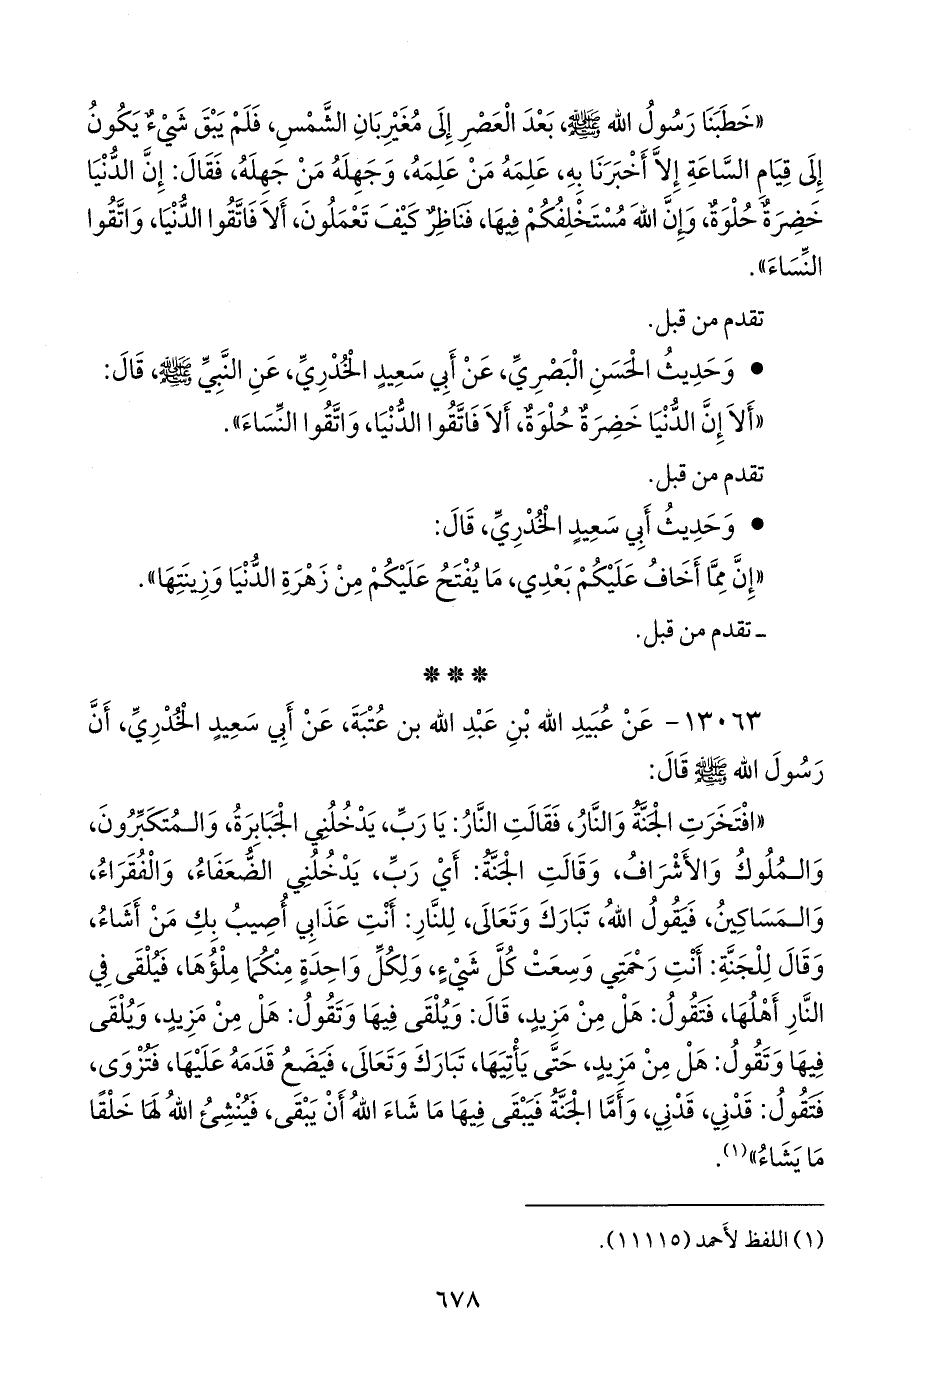 «خَطَبَنَا رَسُولُ الله ﷺ، بَعْدَ الْعَصْرِ إِلَى مُغَيْرِبَانِ الشَّمْسِ، فَلَمْ يَبْقَ شَيْءٌ يَكُونُ
إِلَى قِيَامِ السَّاعَةِ إِلاَّ أَخْبَرَنَا بِهِ، عَلِمَهُ مَنْ عَلِمَهُ، وَجَهِلَهُ مَنْ جَهِلَهُ، فَقَالَ: إِنَّ الدُّنْيَا
خَضِرَةٌ حُلْوَةٌ، وَإِنَّ اللهَ مُسْتَخْلِفُكُمْ فِيهَا، فَنَاظِرٌ كَيْفَ تَعْمَلُونَ، أَلاَ فَاتَّقُوا الدُّنْيَا، وَاتَّقُوا
النِّسَاءَ».
تقدم من قبل.
• وَحَدِيثُ الْحَسَنِ الْبَصْرِيِّ، عَنْ أَبِي سَعِيدٍ الْخُدْرِيِّ، عَنِ النَّبِيِّ ﷺ، قَالَ:
«أَلاَ إِنَّ الدُّنْيَا خَضِرَةٌ حُلْوَةٌ، أَلاَ فَاتَّقُوا الدُّنْيَا، وَاتَّقُوا النِّسَاءَ».
تقدم من قبل.
• وَحَدِيثُ أَبِي سَعِيدٍ الْخُدْرِيِّ، قَالَ:
«إِنَّ مِمَّا أَخَافُ عَلَيْكُمْ بَعْدِي، مَا يُفْتَحُ عَلَيْكُمْ مِنْ زَهْرَةِ الدُّنْيَا وَزِينَتِهَا».
ـ تقدم من قبل.
* * *
١٣٠٦٣- عَنْ عُبَيدِ الله بْنِ عَبْدِ الله بن عُتْبَةَ، عَنْ أَبِي سَعِيدٍ الْخُدْرِيِّ، أَنَّ
رَسُولَ الله ﷺ قَالَ:
«افْتَخَرَتِ الْجَنَّةُ وَالنَّارُ، فَقَالَتِ النَّارُ: يَا رَبِّ، يَدْخُلُنِي الْجَبَابِرَةُ، وَالـمُتَكَبِّرُونَ،
وَالـمُلُوكُ وَالأَشْرَافُ، وَقَالَتِ الْجَنَّةُ: أَيْ رَبِّ، يَدْخُلُنِي الضُّعَفَاءُ، وَالْفُقَرَاءُ،
وَالـمَسَاكِينُ، فَيَقُولُ اللهُ، تَبَارَكَ وَتَعَالَى، لِلنَّارِ: أَنْتِ عَذَابِي أُصِيبُ بِكِ مَنْ أَشَاءُ،
وَقَالَ لِلْجَنَّةِ: أَنْتِ رَحْمَتِي وَسِعَتْ كُلَّ شَيْءٍ، وَلِكُلِّ وَاحِدَةٍ مِنْكُمَا مِلْؤُهَا، فَيُلْقَى فِي
النَّارِ أَهْلُهَا، فَتَقُولُ: هَلْ مِنْ مَزِيدٍ، قَالَ: وَيُلْقَى فِيهَا وَتَقُولُ: هَلْ مِنْ مَزِيدٍ، وَيُلْقَى
فِيهَا وَتَقُولُ: هَلْ مِنْ مَزِيدٍ، حَتَّى يَأْتِيَهَا، تَبَارَكَ وَتَعَالَى، فَيَضَعُ قَدَمَهُ عَلَيْهَا، فَتُزْوَى،
فَتَقُولُ: قَدْنِي، قَدْنِي، وَأَمَّا الْجَنَّةُ فَيَبْقَى فِيهَا مَا شَاءَ اللهُ أَنْ يَبْقَى، فَيُنْشِئُ اللهُ لَهَا خَلْقًا
مَا يَشَاءُ»(١).
(١) اللفظ لأَحمد (١١١١٥).
٦٧٨